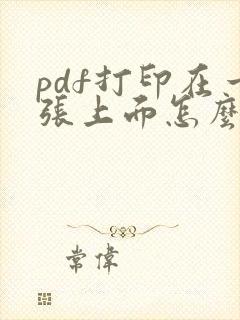 pdf打印在一
張上而怎麼
常偉